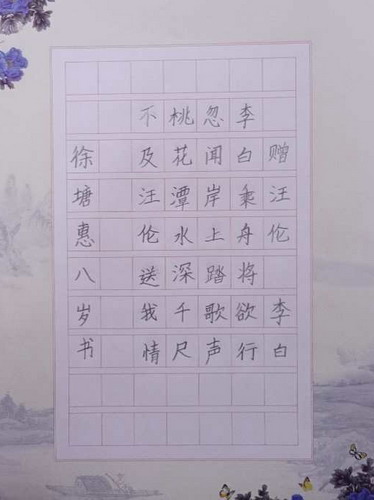 赠汪伦 李白
李白乘舟将欲行
忽闻岸上踏歌声
桃花潭水深千尺
不及汪伦送我情
徐塘惠八岁书